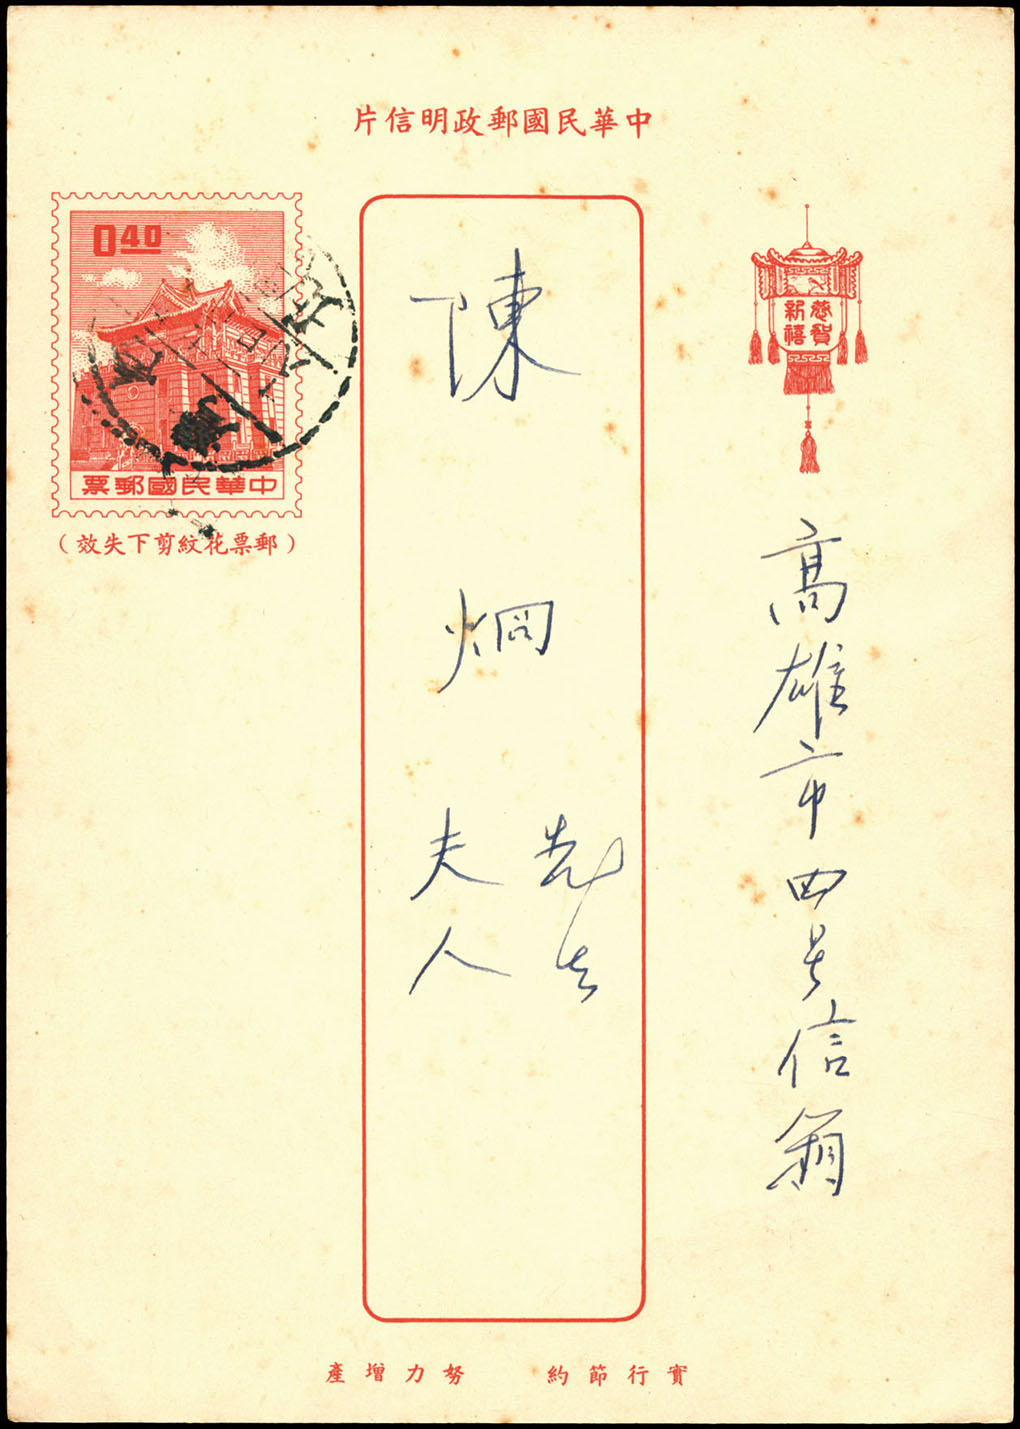 中華民國郵政明信片
0.40
中華民國郵票
(郵票花紋剪下失效)
恭賀
新禧
高雄市四号信箱
陳炯先生
夫人
實行節約 努力增產